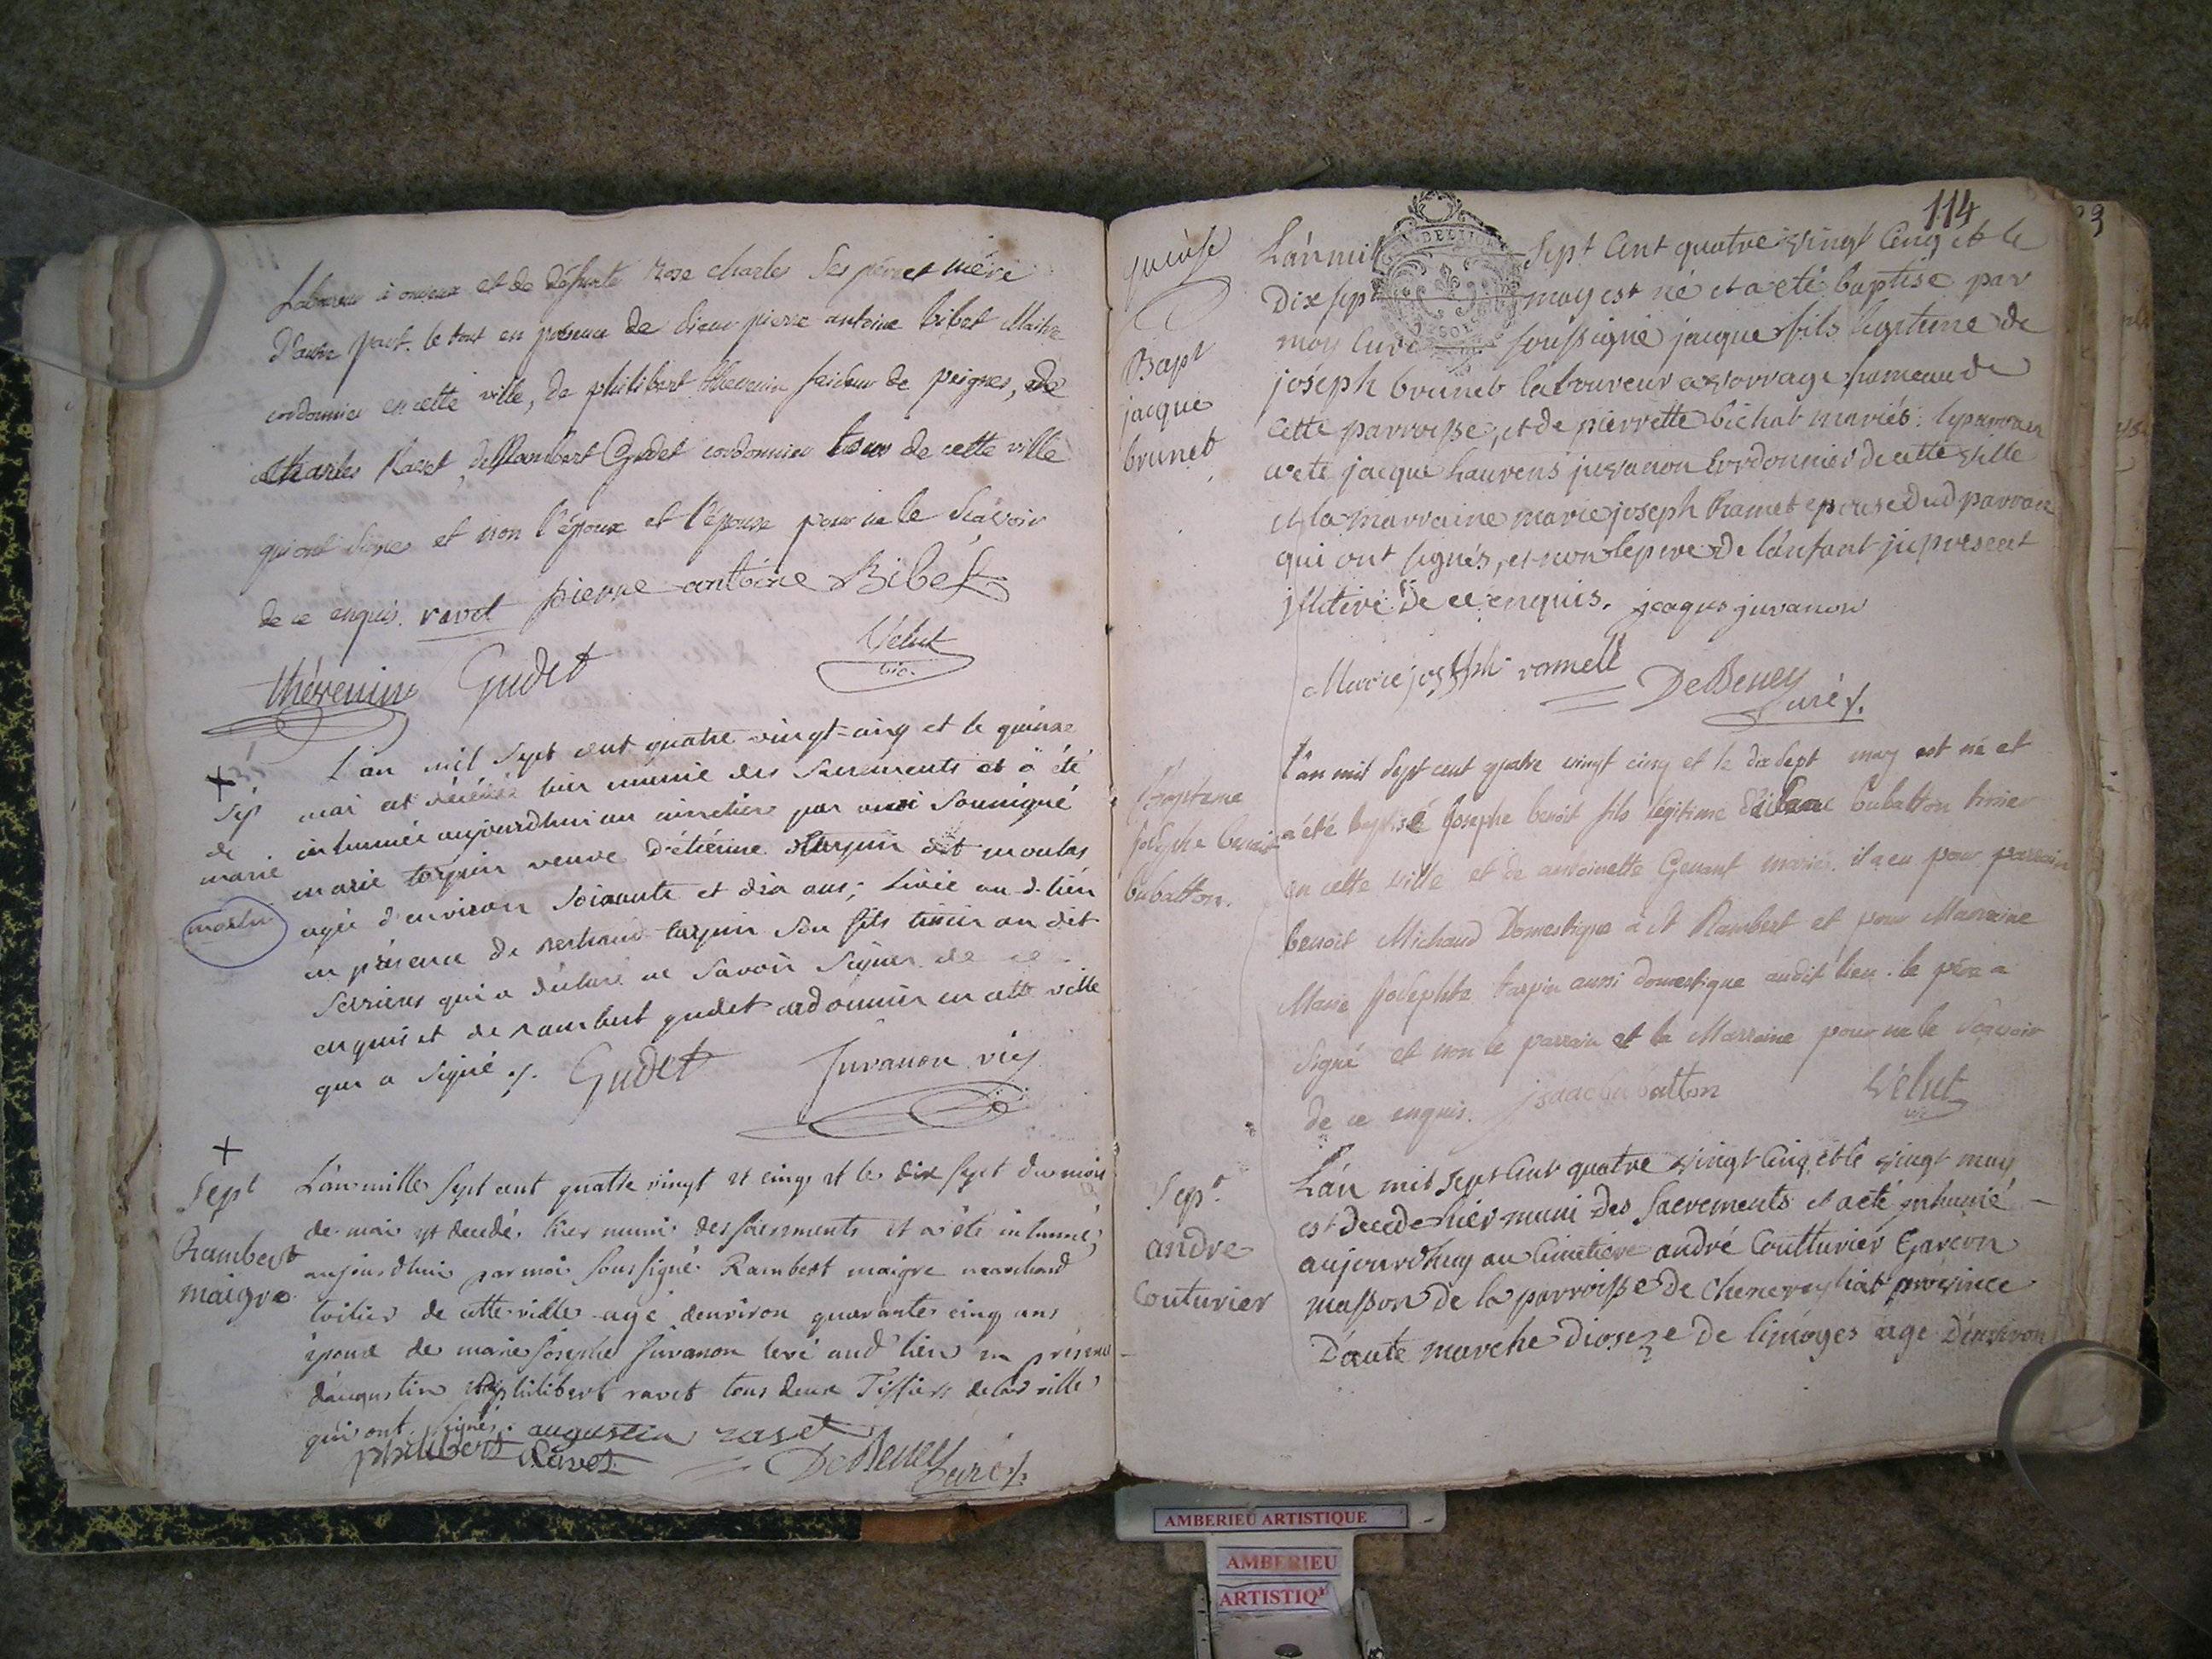 Laboureur à onceux et de défunte Rose charles Ses père et mère
D'autre part. le tout en présence de Sieur pierre antoine bibet Maitre
cordonnier en cette ville, de philibert thévenin faiseur de peignes, de
Charles Ravet, de Rambert Gudet cordonnier tous de cette ville
qui ont signé et non l'époux et l'épouse pour ne le Sçavoir
de ce enquis. ravet pierre antoine Bibet
thévenin Gudet Velut
vic.
+
Sép
de
marie
L'an mil Sept cent quatre vingt-cinq et le quinze
mai est décédée hier munie des Sacrements et a été
inhumée aujourdhui au cimetière par moi Soussigné
marie tarpin veuve d'étienne tarpin dit moulas
agée d'environ Soixante et dix ans; Livée au d. lieu
en présence de bertrand tarpin Son fils tissier au dit
Serrieres qui a déclaré ne Savoir Signer de ce
enquis et de rambert gudet cordonnier en cette ville
qui a signé ./. Gudet Juvanon vic
+
Sept
Rambert
maigre
L'an mille Sept cent quatre vingt et cinq et le dix sept du mois
de mai est decedé hier muni des sacrements et a été inhumé
aujourdhui par moi Soussigné Rambert maigre marchand
toilier de cette ville agé denviron quarante cinq ans
époux de marie Josephe Juvanon levé aud lieu en présence
daugustin et philibert ravet tous deux Tissiers de la ville
qui ont signés. augustin ravet
philibert Ravet DeBeney
curé ./.
114
Bapt
jacque
brunet
L'an mil Sept Cent quatre vingt Cinq et le
Dix sept may est né et a eté baptisé par
moy Curé soussigné jacque fils legitime de
joseph brunet laboureur a vorvage hameau de
Cette parroisse, et de pierrette bichat mariés. le parrain
a eté jacque Laurens juvanon Cordonnier de cette ville
et la marraine marie joseph Ramet epouse dud parrain
qui ont signés, et non le pere de l'enfant ji present
jlliteré De ce enquis. jcaques juvanon
Marie joseph ramell
DeBeney
curé ./.
Bapteme
Josephe benoit
bubatton.
L'an mil Sept cent quatre vingt cinq et le dix Sept may est né et
a été baptisé Josephe benoit fils légitime d'isaac bubatton tissier
en cette ville et de antoinette Genant mariés. il a eu pour parrain
benoit Michaud Domestique à St Rambert et pour Marraine
Marie Josephte tarpin aussi domestique audit lieu. le père a
Signé et non le parrain et la Marraine pour ne le Sçavoir
de ce enquis. isaac bubatton Velut
vic
Sepr
andre
Couturier
L'an mil Sept Cent quatre vingt Cinq et le vingt may
est decede hier muni des Sacrements et a eté inhumé
aujourdhuy au Cimetiere andré Coutturier Garçon
masson de la parroisse de province
D'aute marche Dioseze de limoges age D'environ
AMBERIEU ARTISTIQUE
AMBERIEU
ARTISTIQ